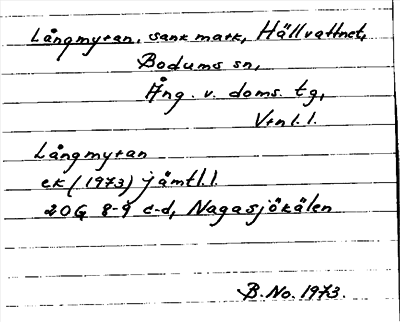 Långmyran, sank mark, Hällvattnet,
Bodums sn,
Ång. v. doms. tg,
Vtnl.l.
Långmyran
ek (1973) jämtl.l.
20G 8-9 c-d, Nagasjökälen
B.No. 1973.